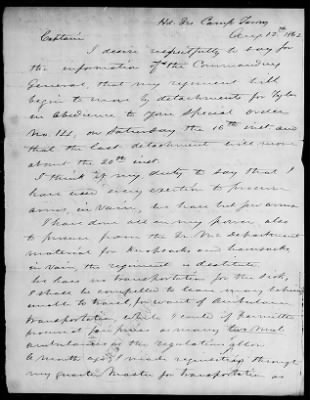 Hd. Qrs Camp
Augt 12th 1862
Captain
I desire respectfully to say for
the information of the Commanding
General, that my regiment will
begin to move by detachments for Tyler
in obedience to your Special Order
No. 124, on Saturday the 16th inst and
that the last detachment will move
about the 20th inst.
I think it my duty to say that I
have used every exertion to procure
arms, in vain, we have but few arms
I have done all in my power also
to procure from the Qr. Mr. Department
material for Knapsacks and haversacks,
in vain, the regiment is destitute.
We have no transportation for the sick,
I shall be compelled to leave many behind
unable to travel for want of Ambulance
transportation, while I could if permitted
procured far price as many two mul
ambulances as the regulations allow.
A month ago I made requisition through
my quarter Master for transportation as